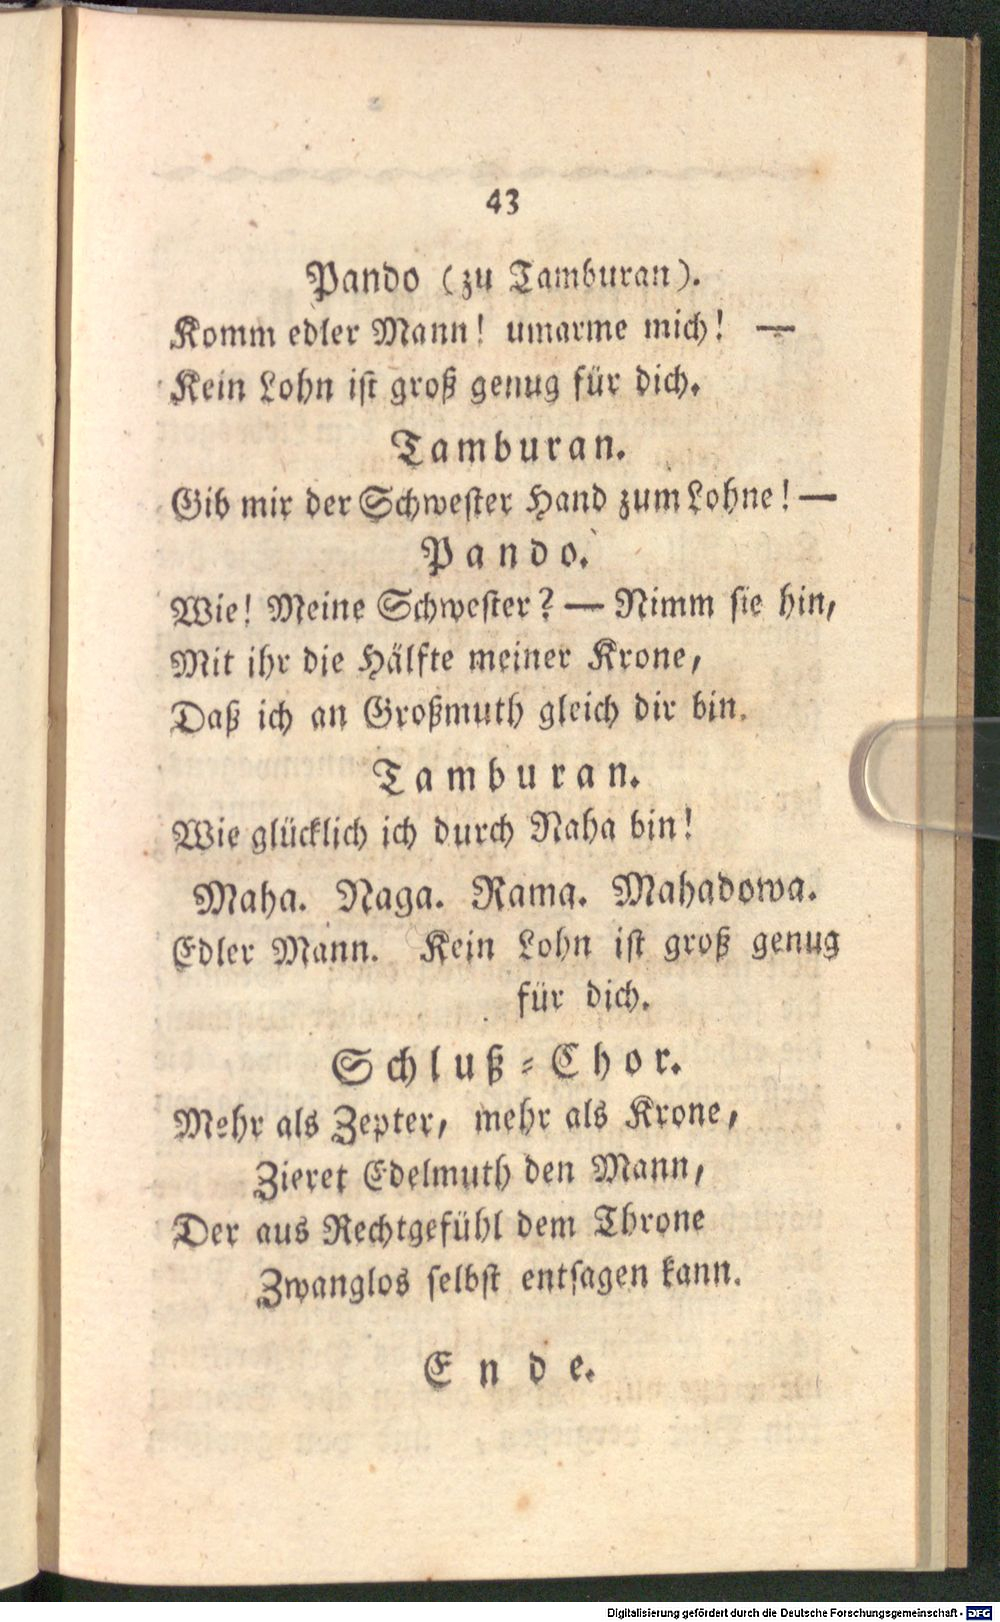 43
Pando (zu Tamburan).
Komm edler Mann! umarme mich! —
Kein Lohn ist groß genug für dich.
Tamburan.
Gib mir der Schwester Hand zum Lohne! —
Pando.
Wie! Meine Schwester? — Nimm sie hin,
Mit ihr die Hälfte meiner Krone,
Daß ich an Großmuth gleich dir bin.
Tamburan.
Wie glücklich ich durch Naha bin!
Maha. Naga. Rama. Mahadowa.
Edler Mann. Kein Lohn ist groß genug
für dich.
Schluß-Chor.
Mehr als Zepter, mehr als Krone,
Zieret Edelmuth den Mann,
Der aus Rechtgefühl dem Throne
Zwanglos selbst entsagen kann.
Ende.
Digitalisierung gefördert durch die Deutsche Forschungsgemeinschaft - DFG